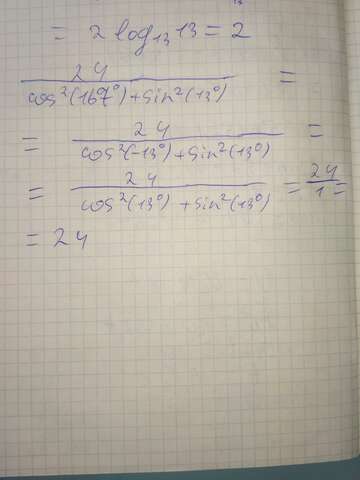 = 2 log₁₃ 13 = 2
24 / cos²(167°)+sin²(13°) =
= 24 / cos²(-13°)+sin²(13°) =
= 24 / cos²(13°) + sin²(13°) = 24/1 =
= 24